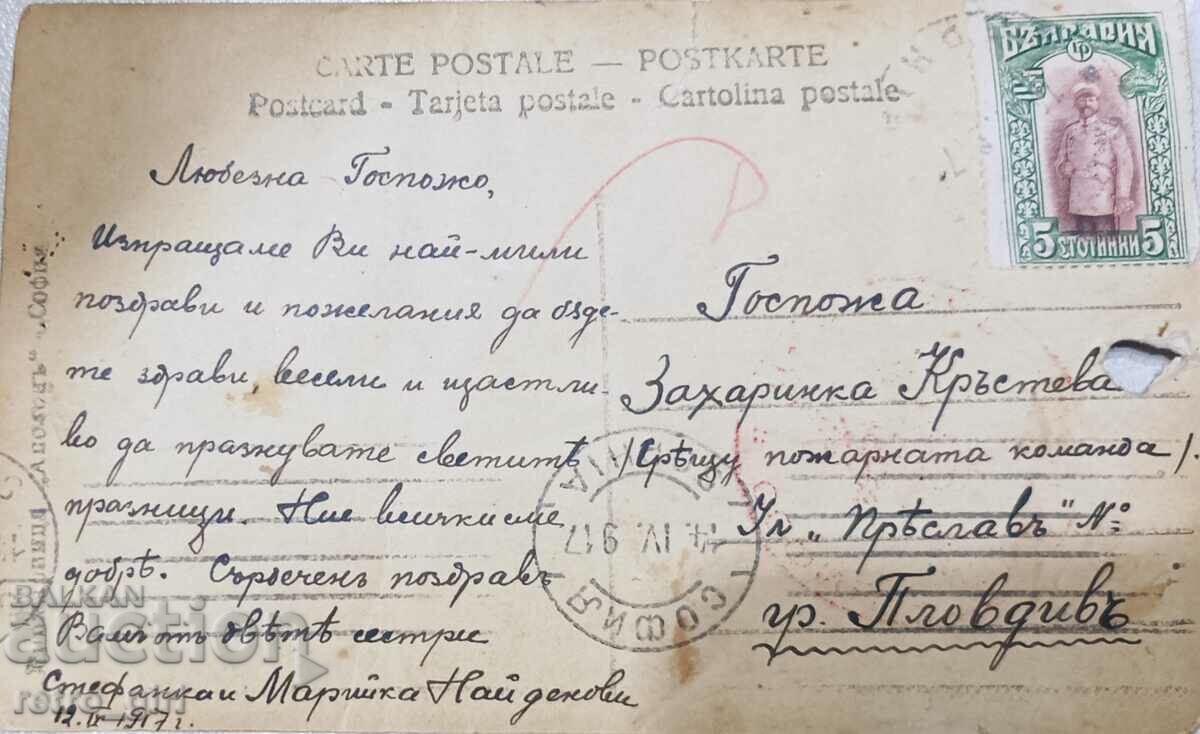 CARTE POSTALE — POSTKARTE
Postcard - Tarjeta postale - Cartolina postale
БЪЛГАРИЯ
5 СТОТИНКИ 5
Любезна Госпожо,
Изпращаме Ви най-мили
поздрави и пожелания да бѫде-
те здрави, весели и щастли-
во да празнувате светитѣ
празници. Ние всички сме
добрѣ. Сърдеченъ поздравъ
Вамъ отъ двѣтѣ сестри
Стефанка и Марийка Найденови
12.IV 1917 г.
Госпожа
Захаринка Кръстева
/Срѣщу пожарната команда/.
Ул „Прѣславъ" №
гр. Пловдивъ
СОФИЯ
14. IV. 917
"Аполонъ" „София
BALKAN
auction
retro_art